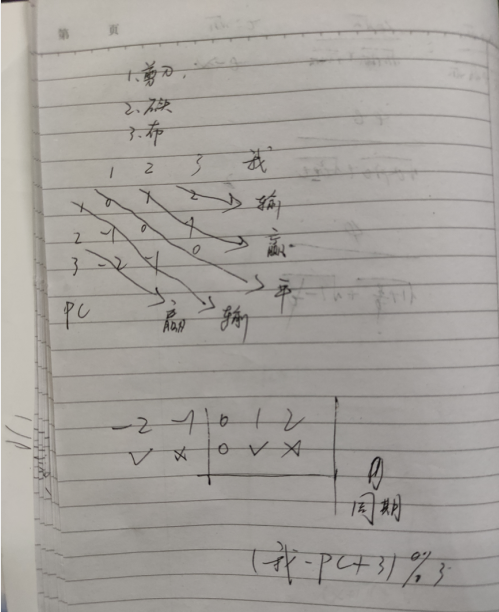 第 页
1.剪刀.
2.石头
3.布
1 2 3 我
1 0 1 2 输
2 -1 0 1 赢
3 -2 -1 0 平
PC 赢 输
-2 -1 0 1 2
✓ × 0 ✓ ×
周期
(我-PC+3)%3